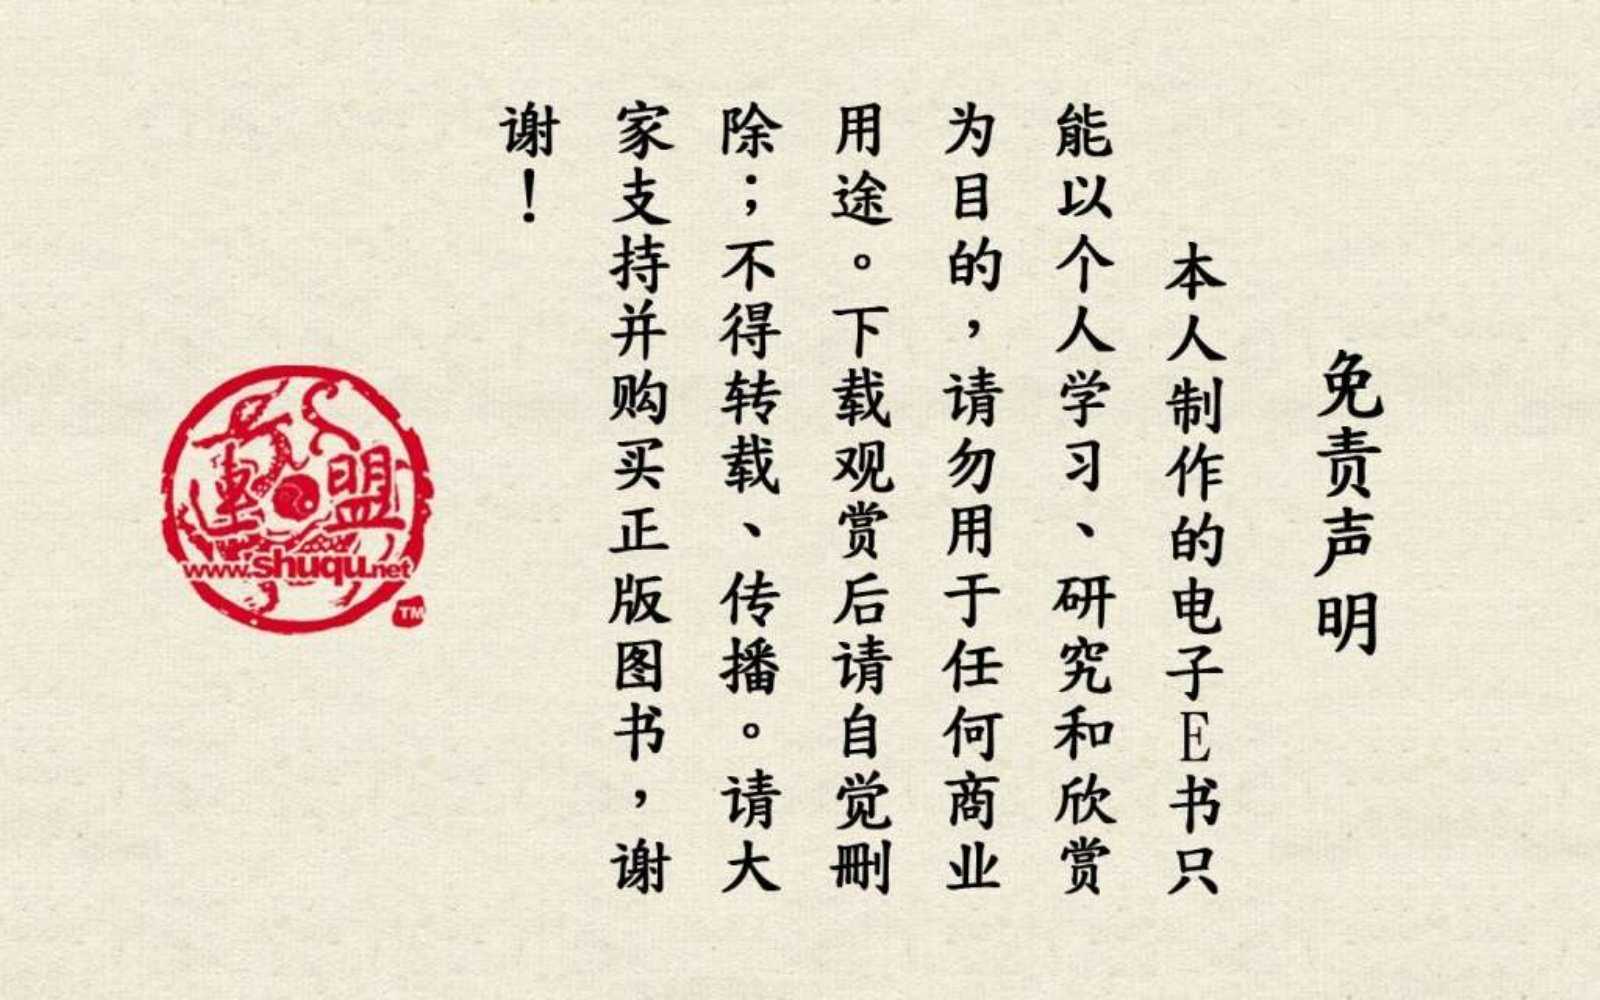 免责声明
本人制作的电子E书只
能以个人学习、研究和欣赏
为目的，请勿用于任何商业
用途。下载观赏后请自觉删
除；不得转载、传播。请大
家支持并购买正版图书，谢
谢！
連盟
www.shuqu.net
TM